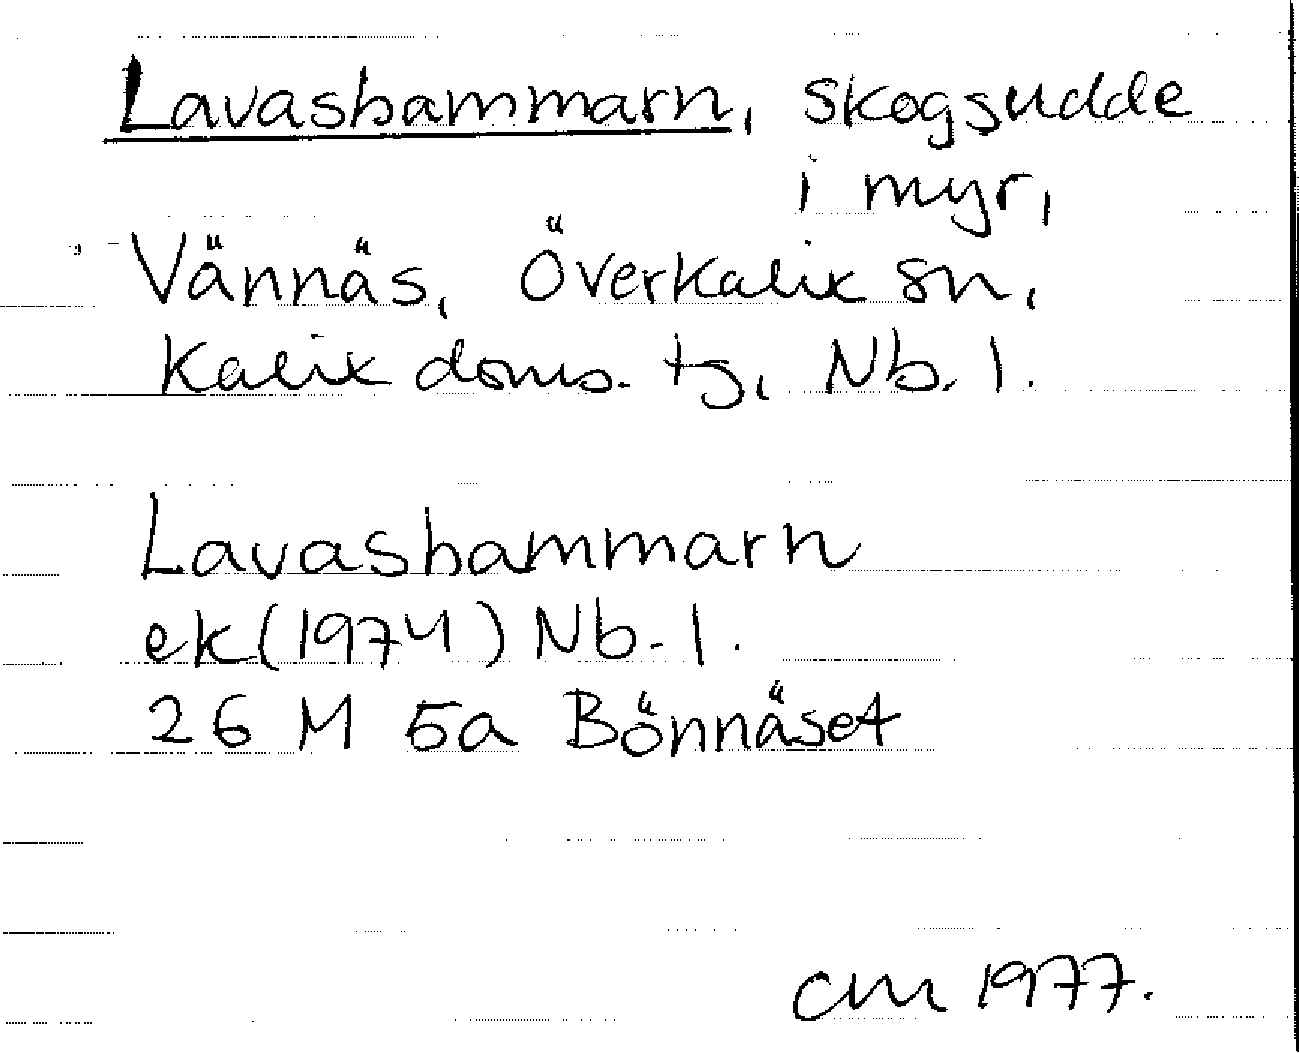 Lavashammarn, skogsudde
i myr,
Vännäs, Överkalix sn,
Kalix doms. tg, Nb. l.
Lavashammarn
ek (1974) Nb. l.
26 M 5a Bönnäset
CM 1977.